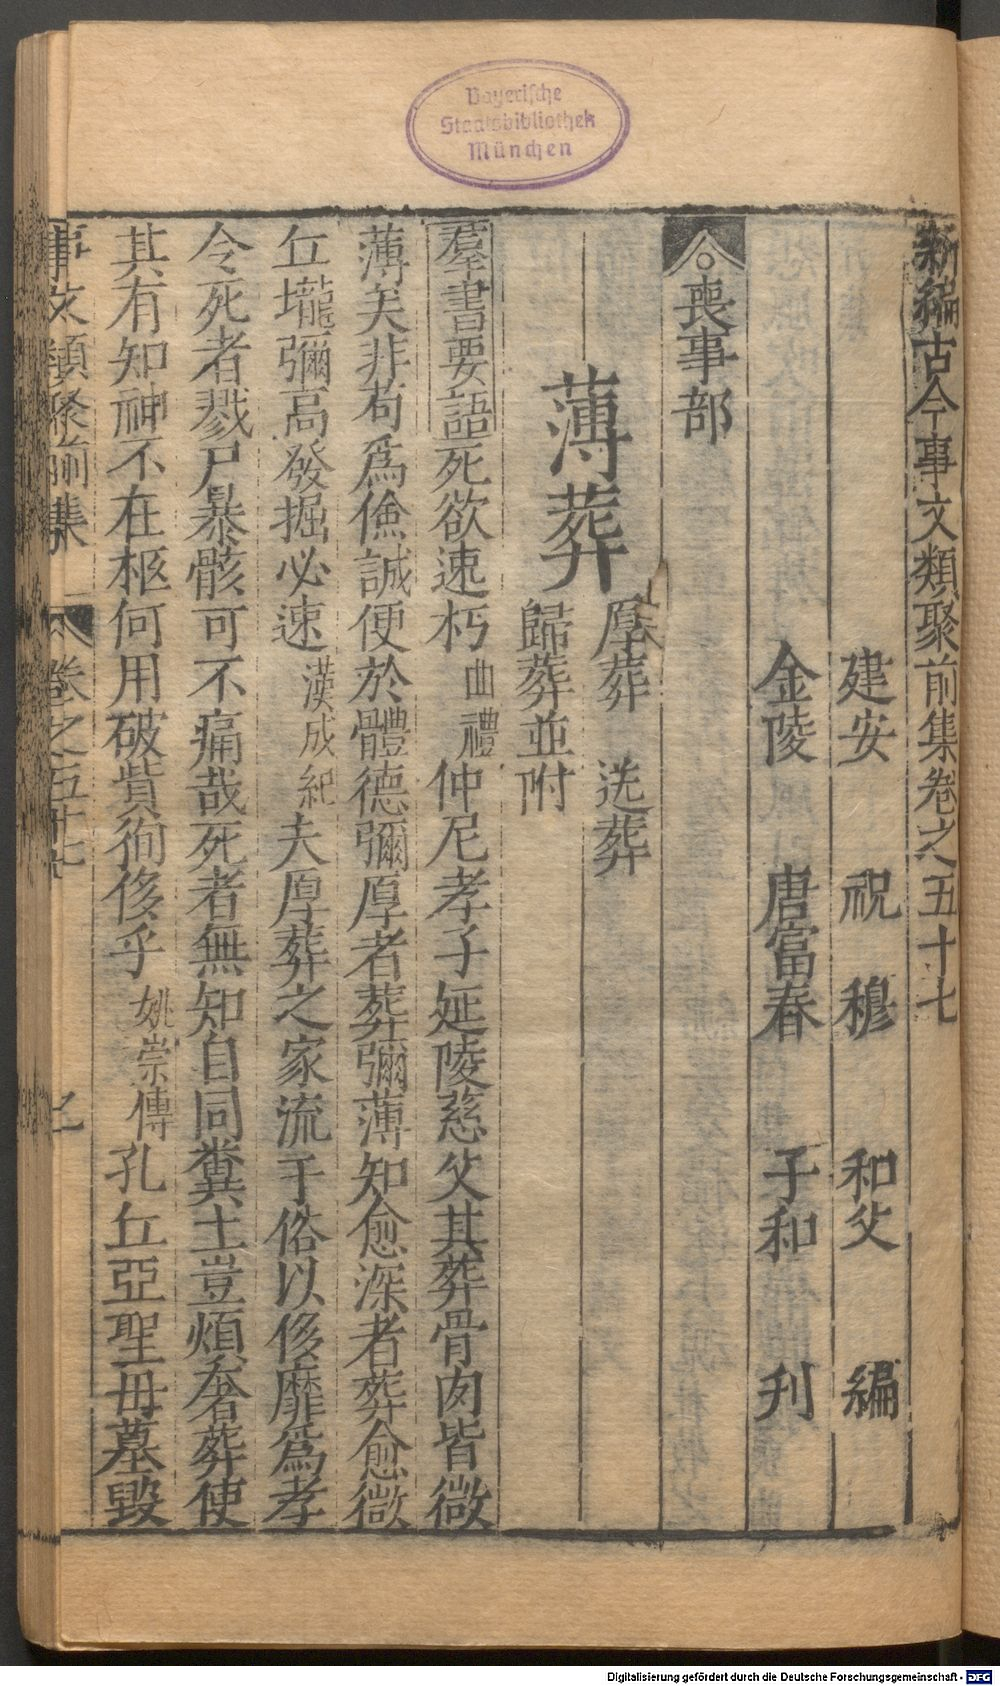 Bayerische
Staatsbibliothek
München
新編古今事文類聚前集卷之五十七
建安 祝 穆 和父 編
金陵 唐富春 子和 刋
喪事部
薄葬 厚葬 迯葬
歸葬並附
羣書要語死欲速朽曲禮仲尼孝子延陵慈父其葬骨肉皆微
薄矣非苟爲儉誠便於體德彌厚者葬彌薄知愈深者葬愈微
丘壠彌高發掘必速漢成紀夫厚葬之家流于俗以侈靡爲孝
令死者戮尸暴骸可不痛哉死者無知自同糞土豈煩奢葬使
其有知神不在柩何用破貲徇侈乎姚崇傳孔丘亞聖毋墓毀
事文類聚前集 卷之五十七
Digitalisierung gefördert durch die Deutsche Forschungsgemeinschaft - DFG